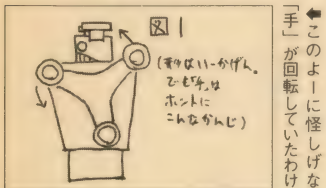 図1
はいーかげん。
でも「手」は
ホントに
こんなかんじ)
⬅このよーに怪しげな
「手」が回転していたわけ